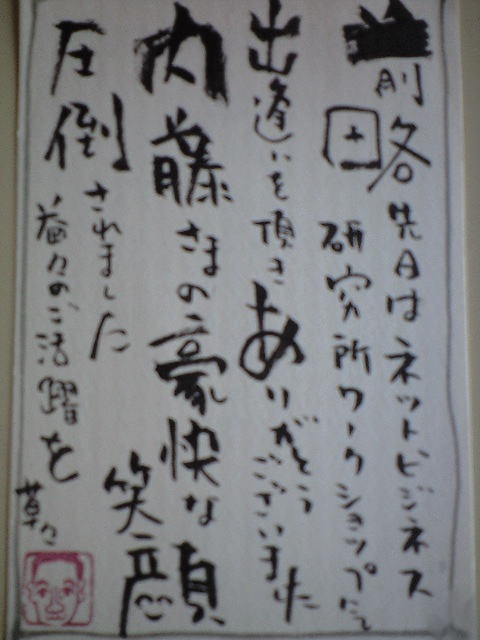 前略 先日はネットビジネス
研究所ワークショップにて
出逢いを頂きありがとうございました
内藤さまの豪快な笑顔
圧倒されました
益々のご活躍を
草々